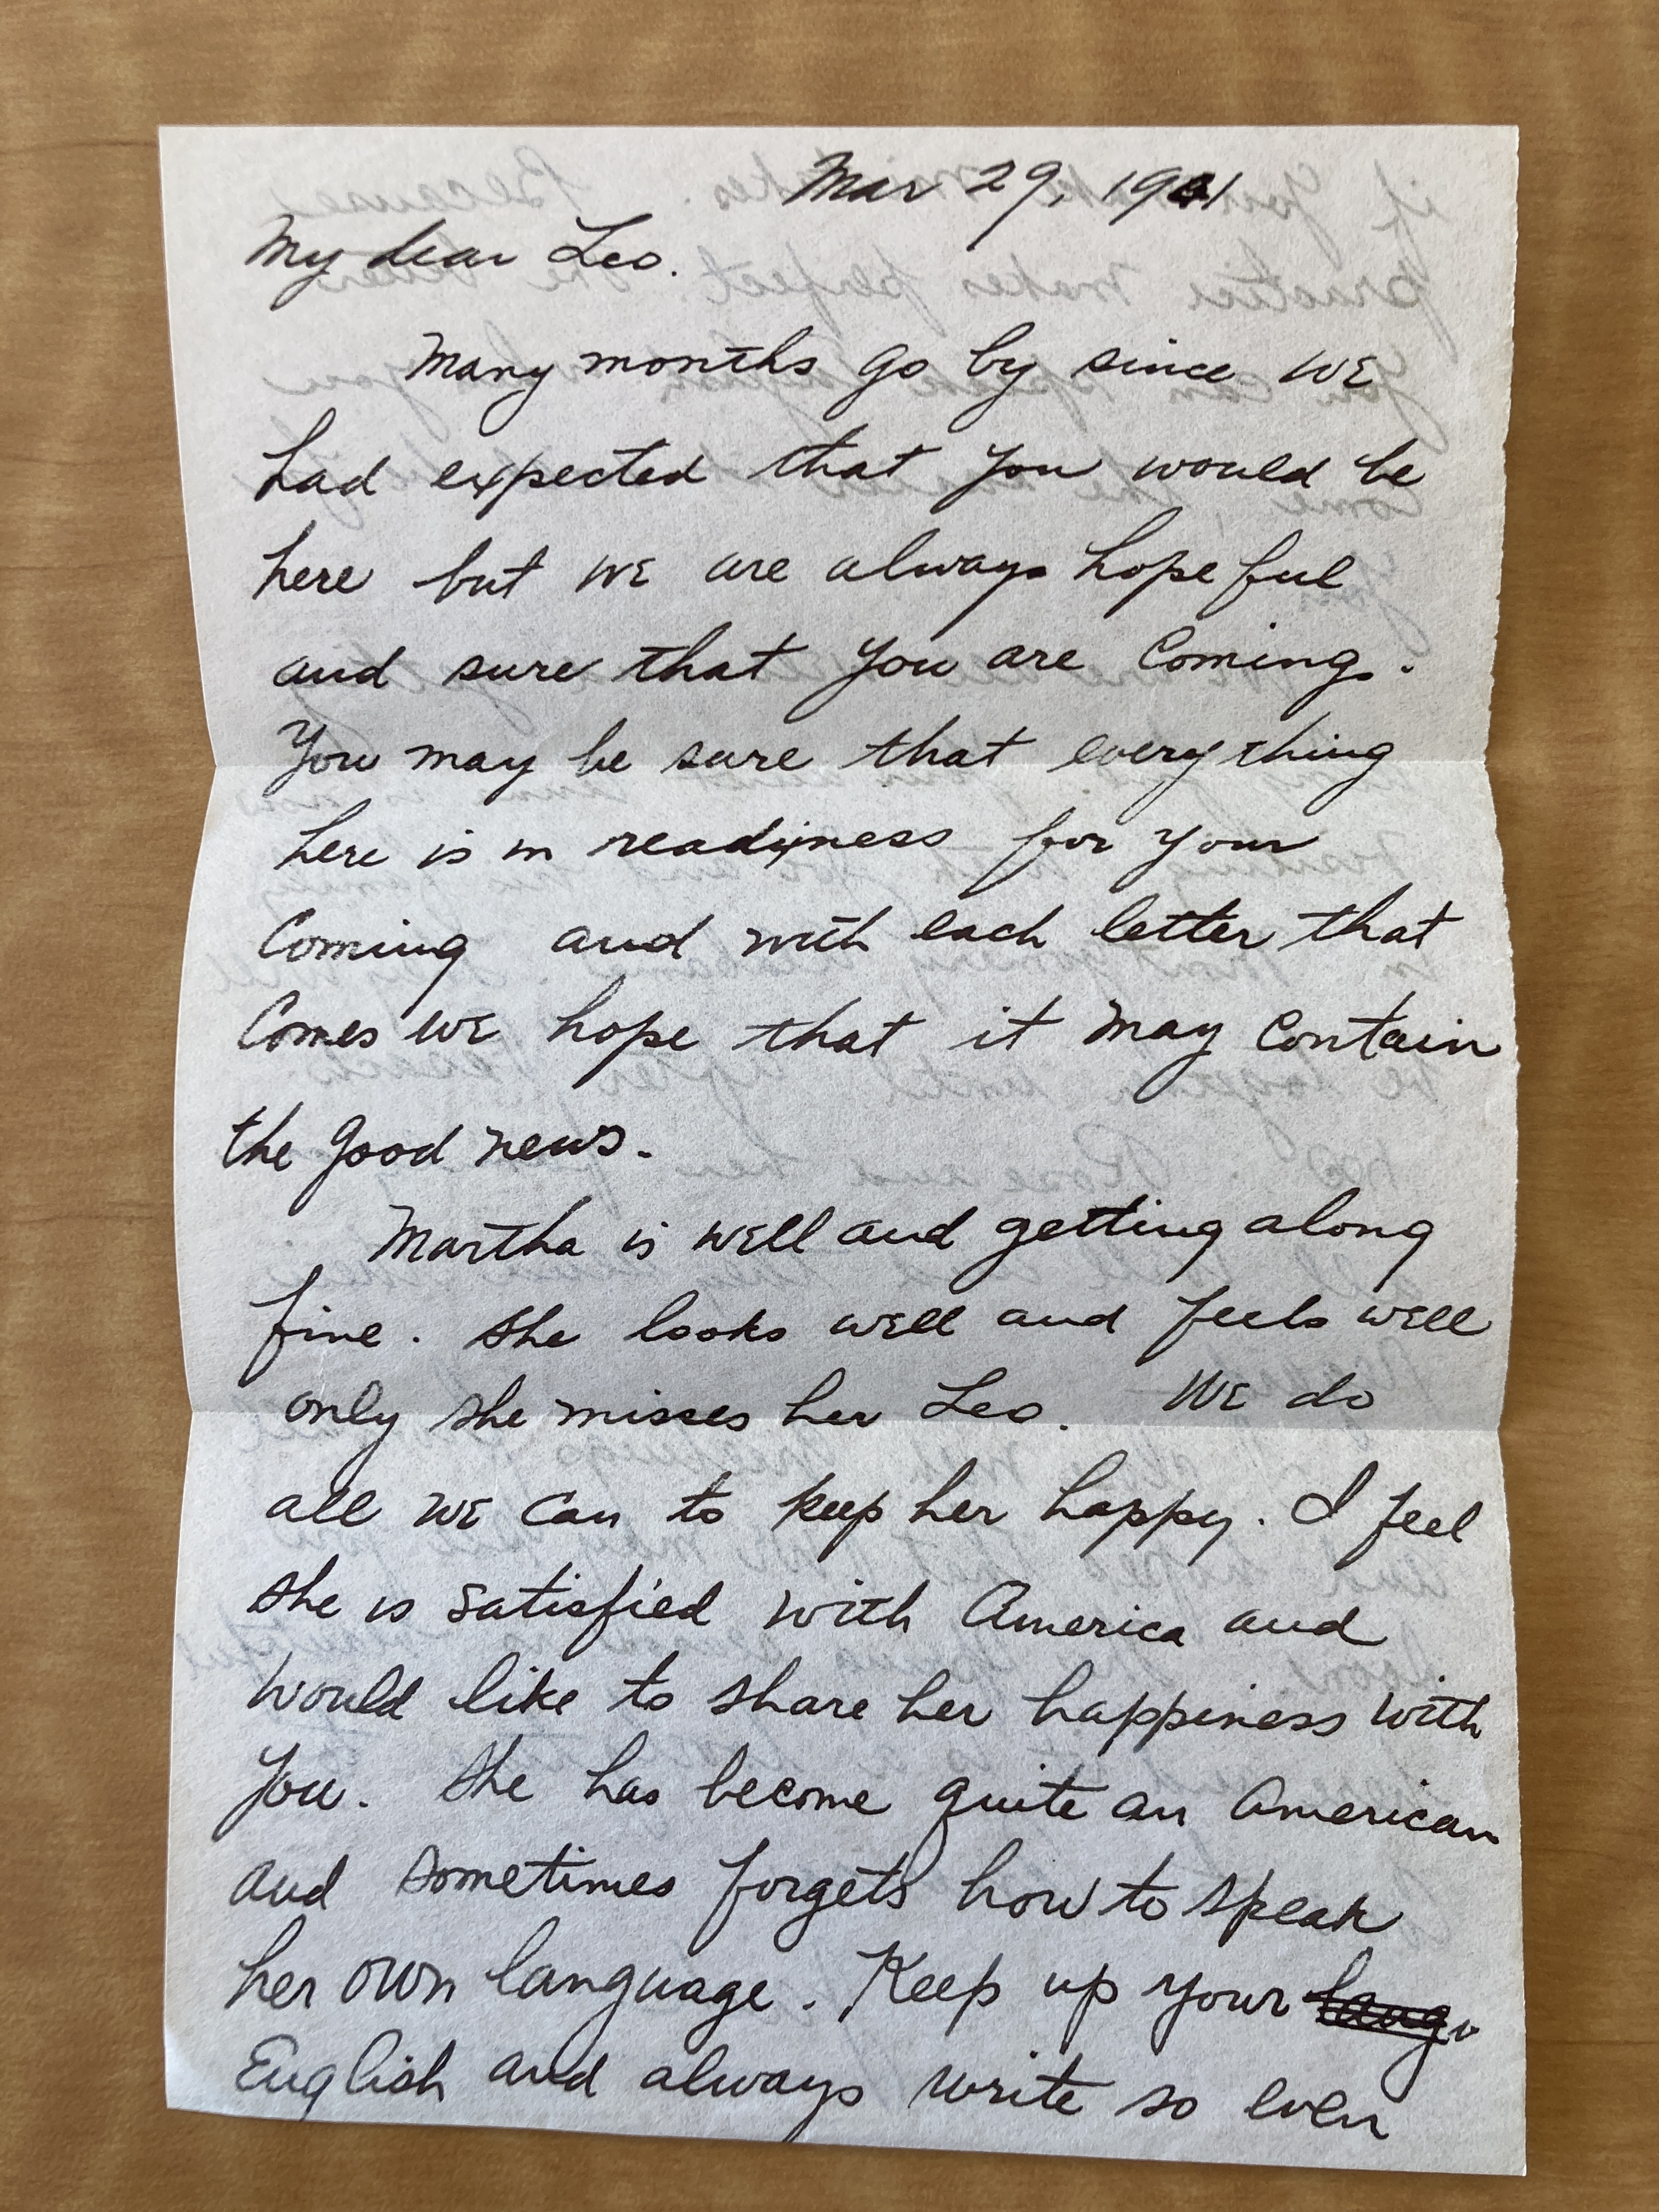 Mar 29, 1941
My dear Leo.
Many months go by since we
had expected that you would be
here but we are always hopeful
and sure that you are coming.
You may be sure that everything
here is in readiness for your
coming and with each letter that
comes we hope that it may contain
the good news.
Martha is well and getting along
fine. She looks well and feels well
only she misses her Leo. We do
all we can to keep her happy. I feel
she is satisfied with America and
would like to share her happiness with
you. She has become quite an American
and sometimes forgets how to speak
her own language. Keep up your
English and always write so even